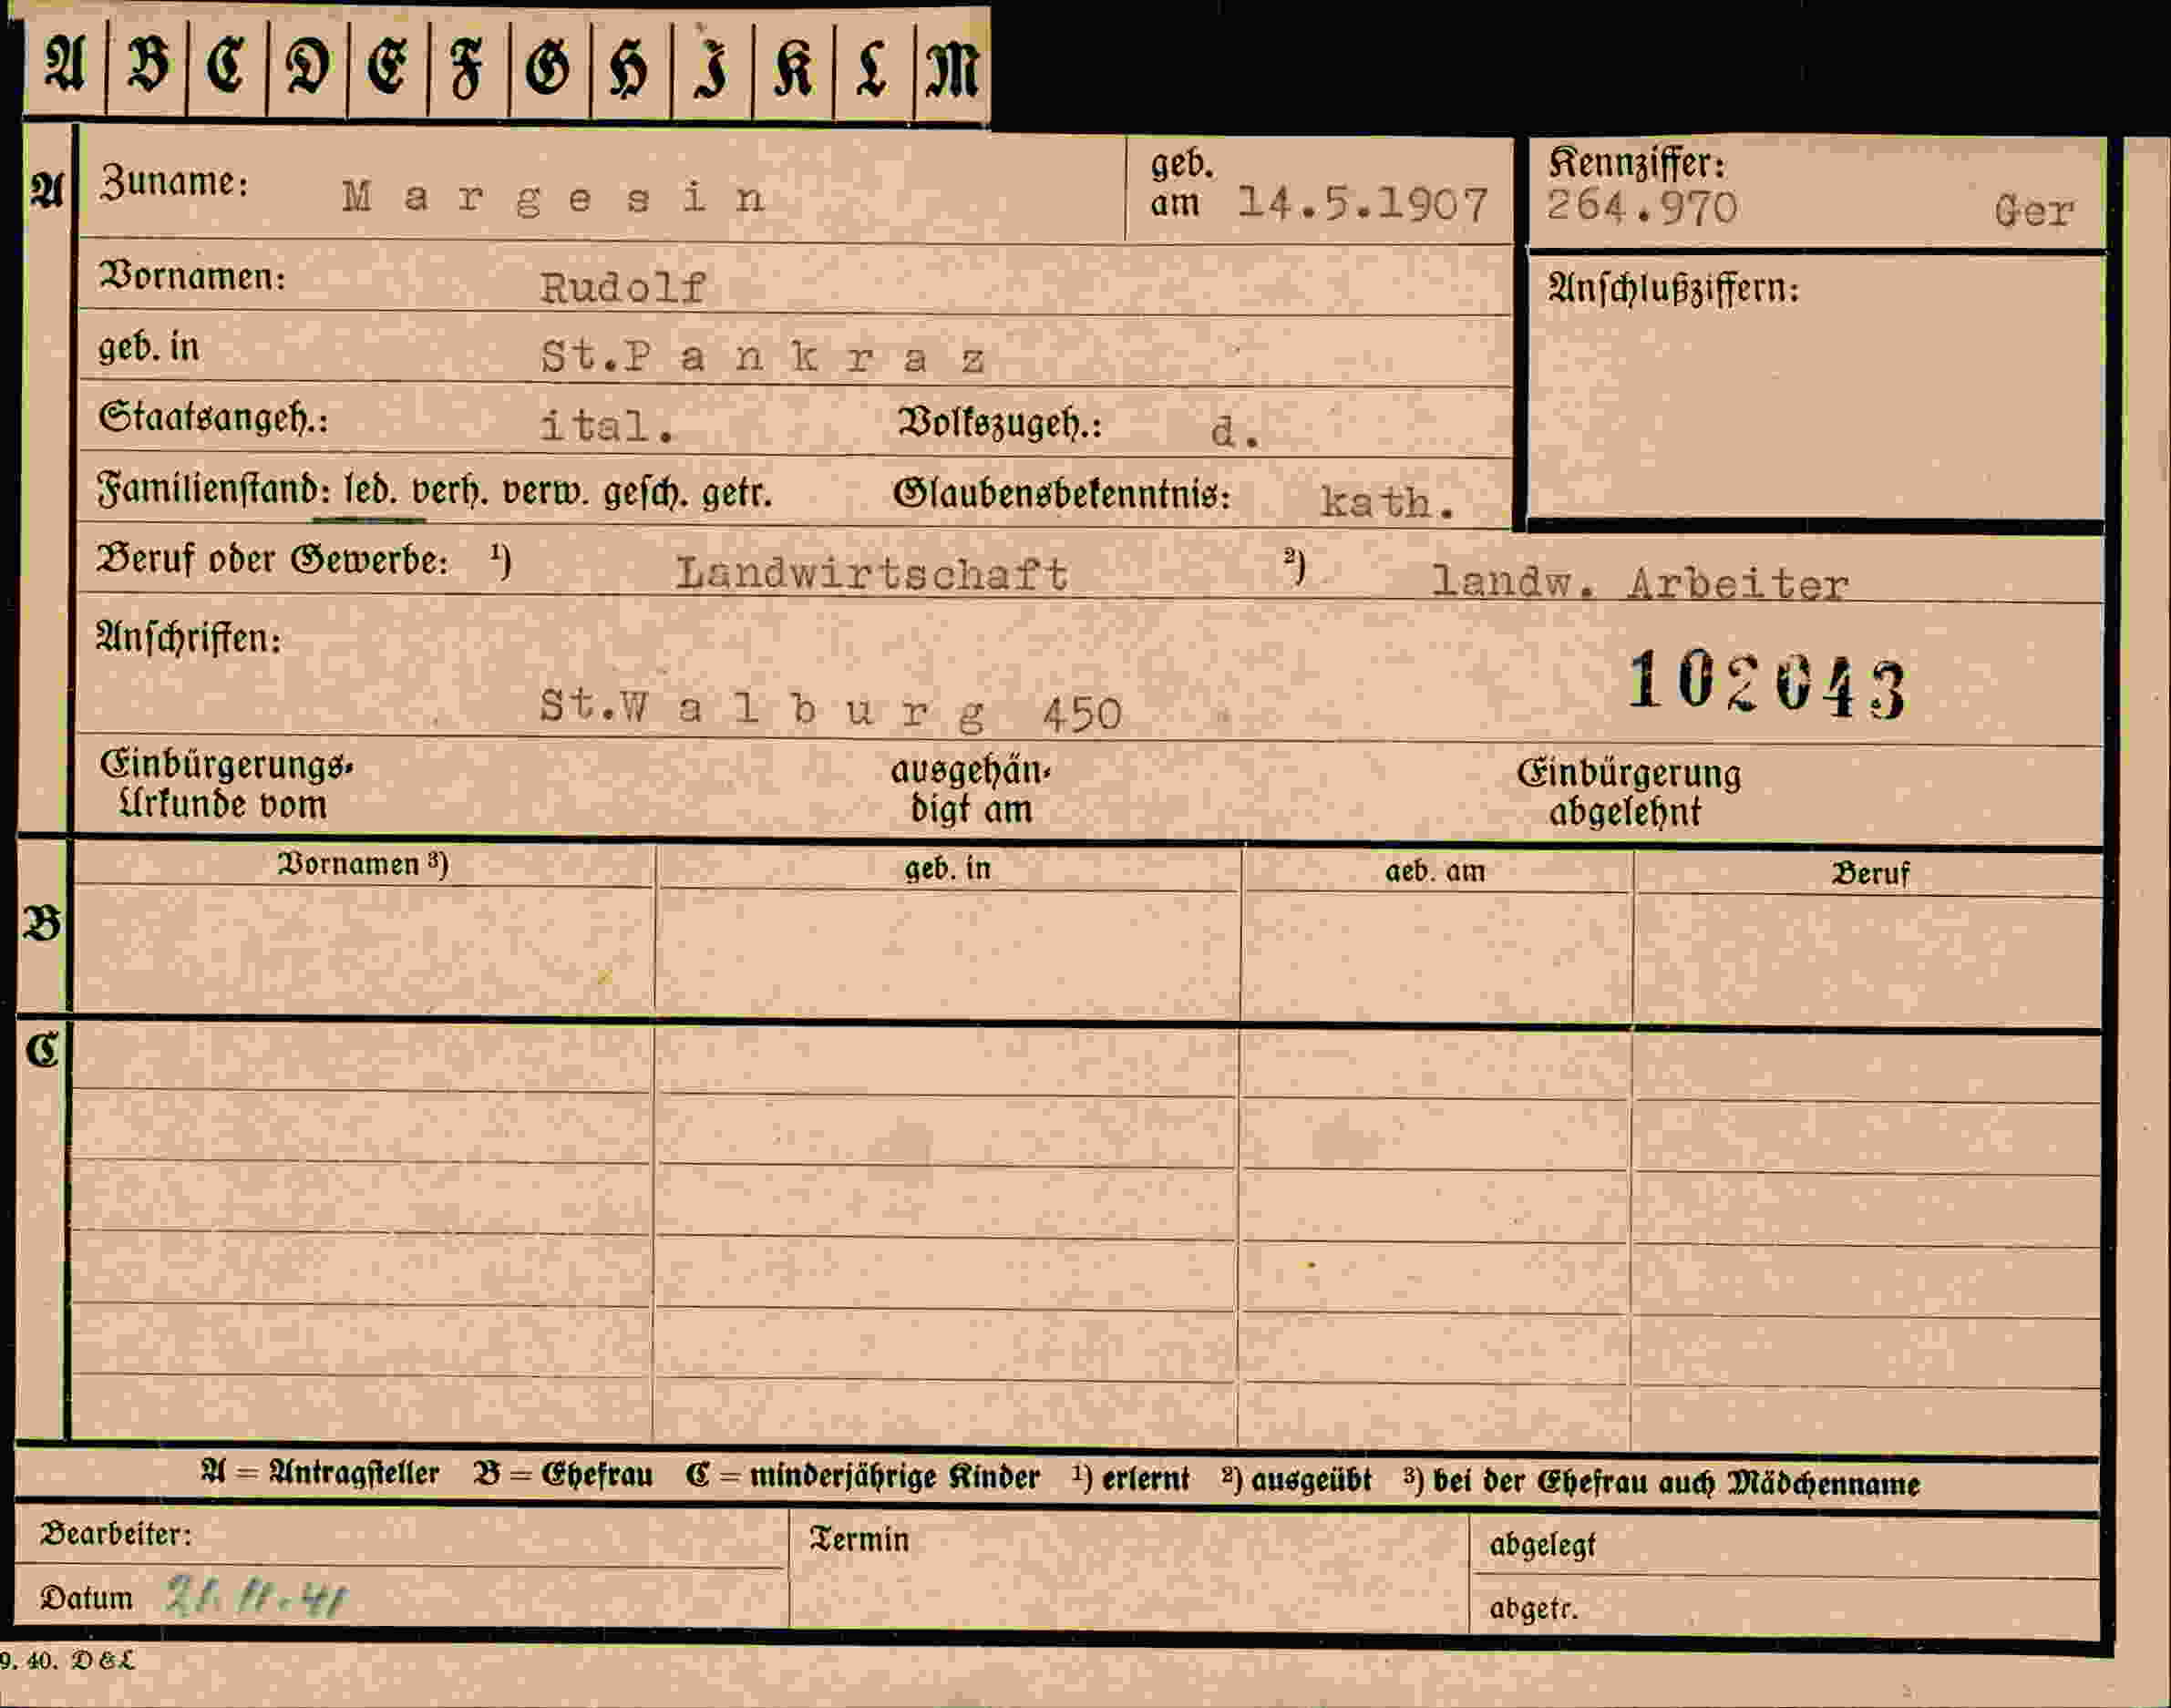 A B C D E F G H I K L M
A Zuname: Margesin geb. am 14.5.1907 Kennziffer: 264.970 Ger
Vornamen: Rudolf Anschlußziffern:
geb. in St.Pankraz
Staatsangeh.: ital. Volkszugeh.: d.
Familienstand: led. verh. verw. gesch. getr. Glaubensbekenntnis: kath.
Beruf oder Gewerbe: ¹) Landwirtschaft ²) landw. Arbeiter
Anschriften:
102043
St.Walburg 450
Einbürgerungs- ausgehän- Einbürgerung
Urkunde vom digt am abgelehnt
Vornamen ³) geb. in geb. am Beruf
B
C
A = Antragsteller B = Ehefrau C = minderjährige Kinder ¹) erlernt ²) ausgeübt ³) bei der Ehefrau auch Mädchenname
Bearbeiter: Termin abgelegt
Datum 21.11.41 abgetr.
9. 40. D & L